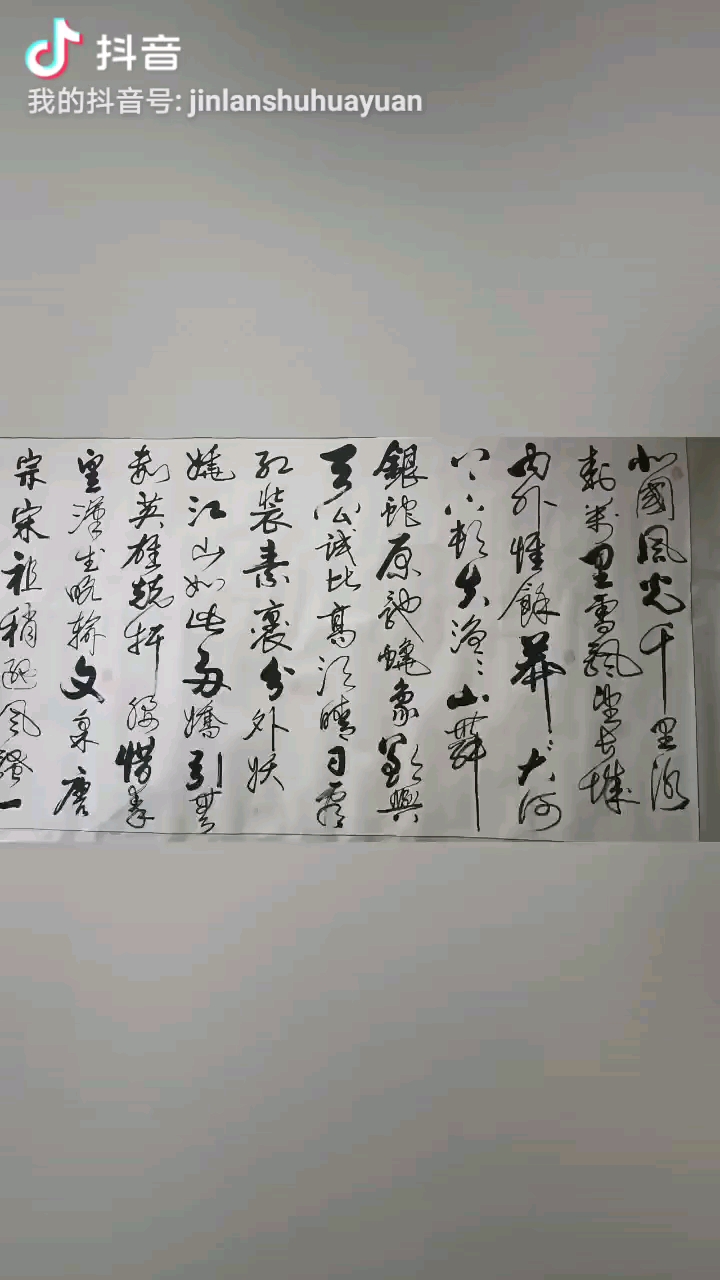 抖音
我的抖音号: jinlanshuhuayuan
北國風光千里冰
封萬里雪飄望長城
内外惟餘莽〻大河
上下頓失滔〻山舞
銀蛇原馳蠟象欲與
天公試比高須晴日看
紅裝素裹分外妖
嬈江山如此多嬌引無
數英雄競折腰惜秦
皇漢武略輸文采唐
宗宋祖稍遜風騷一